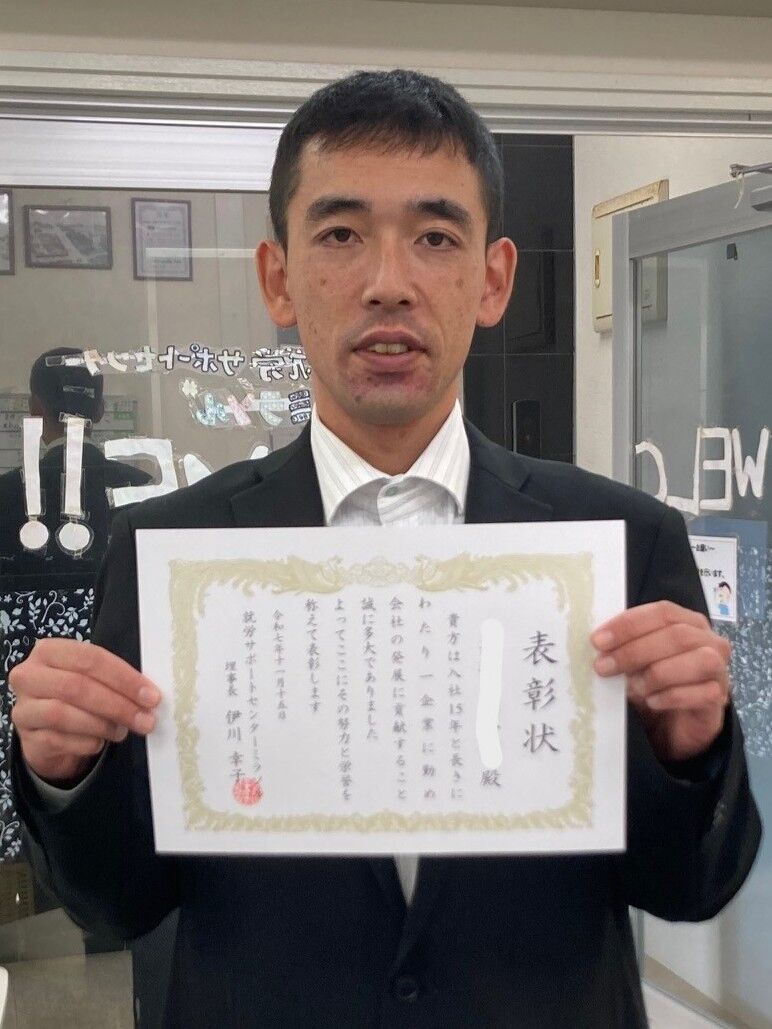 表彰状
殿
貴方は入社15年と長きに
わたり一企業に勤め
会社の発展に貢献すること
誠に多大でありました
よってここにその努力と栄誉を
称えて表彰します
令和七年十一月十五日
就労サポートセンターミラクル
理事長 伊川 幸子
就労サポートセンター
WELC
!!